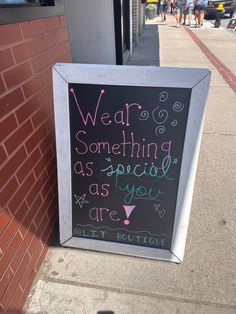 Wear
Something
as special
as you
are!
@LIT BOUTIQUE